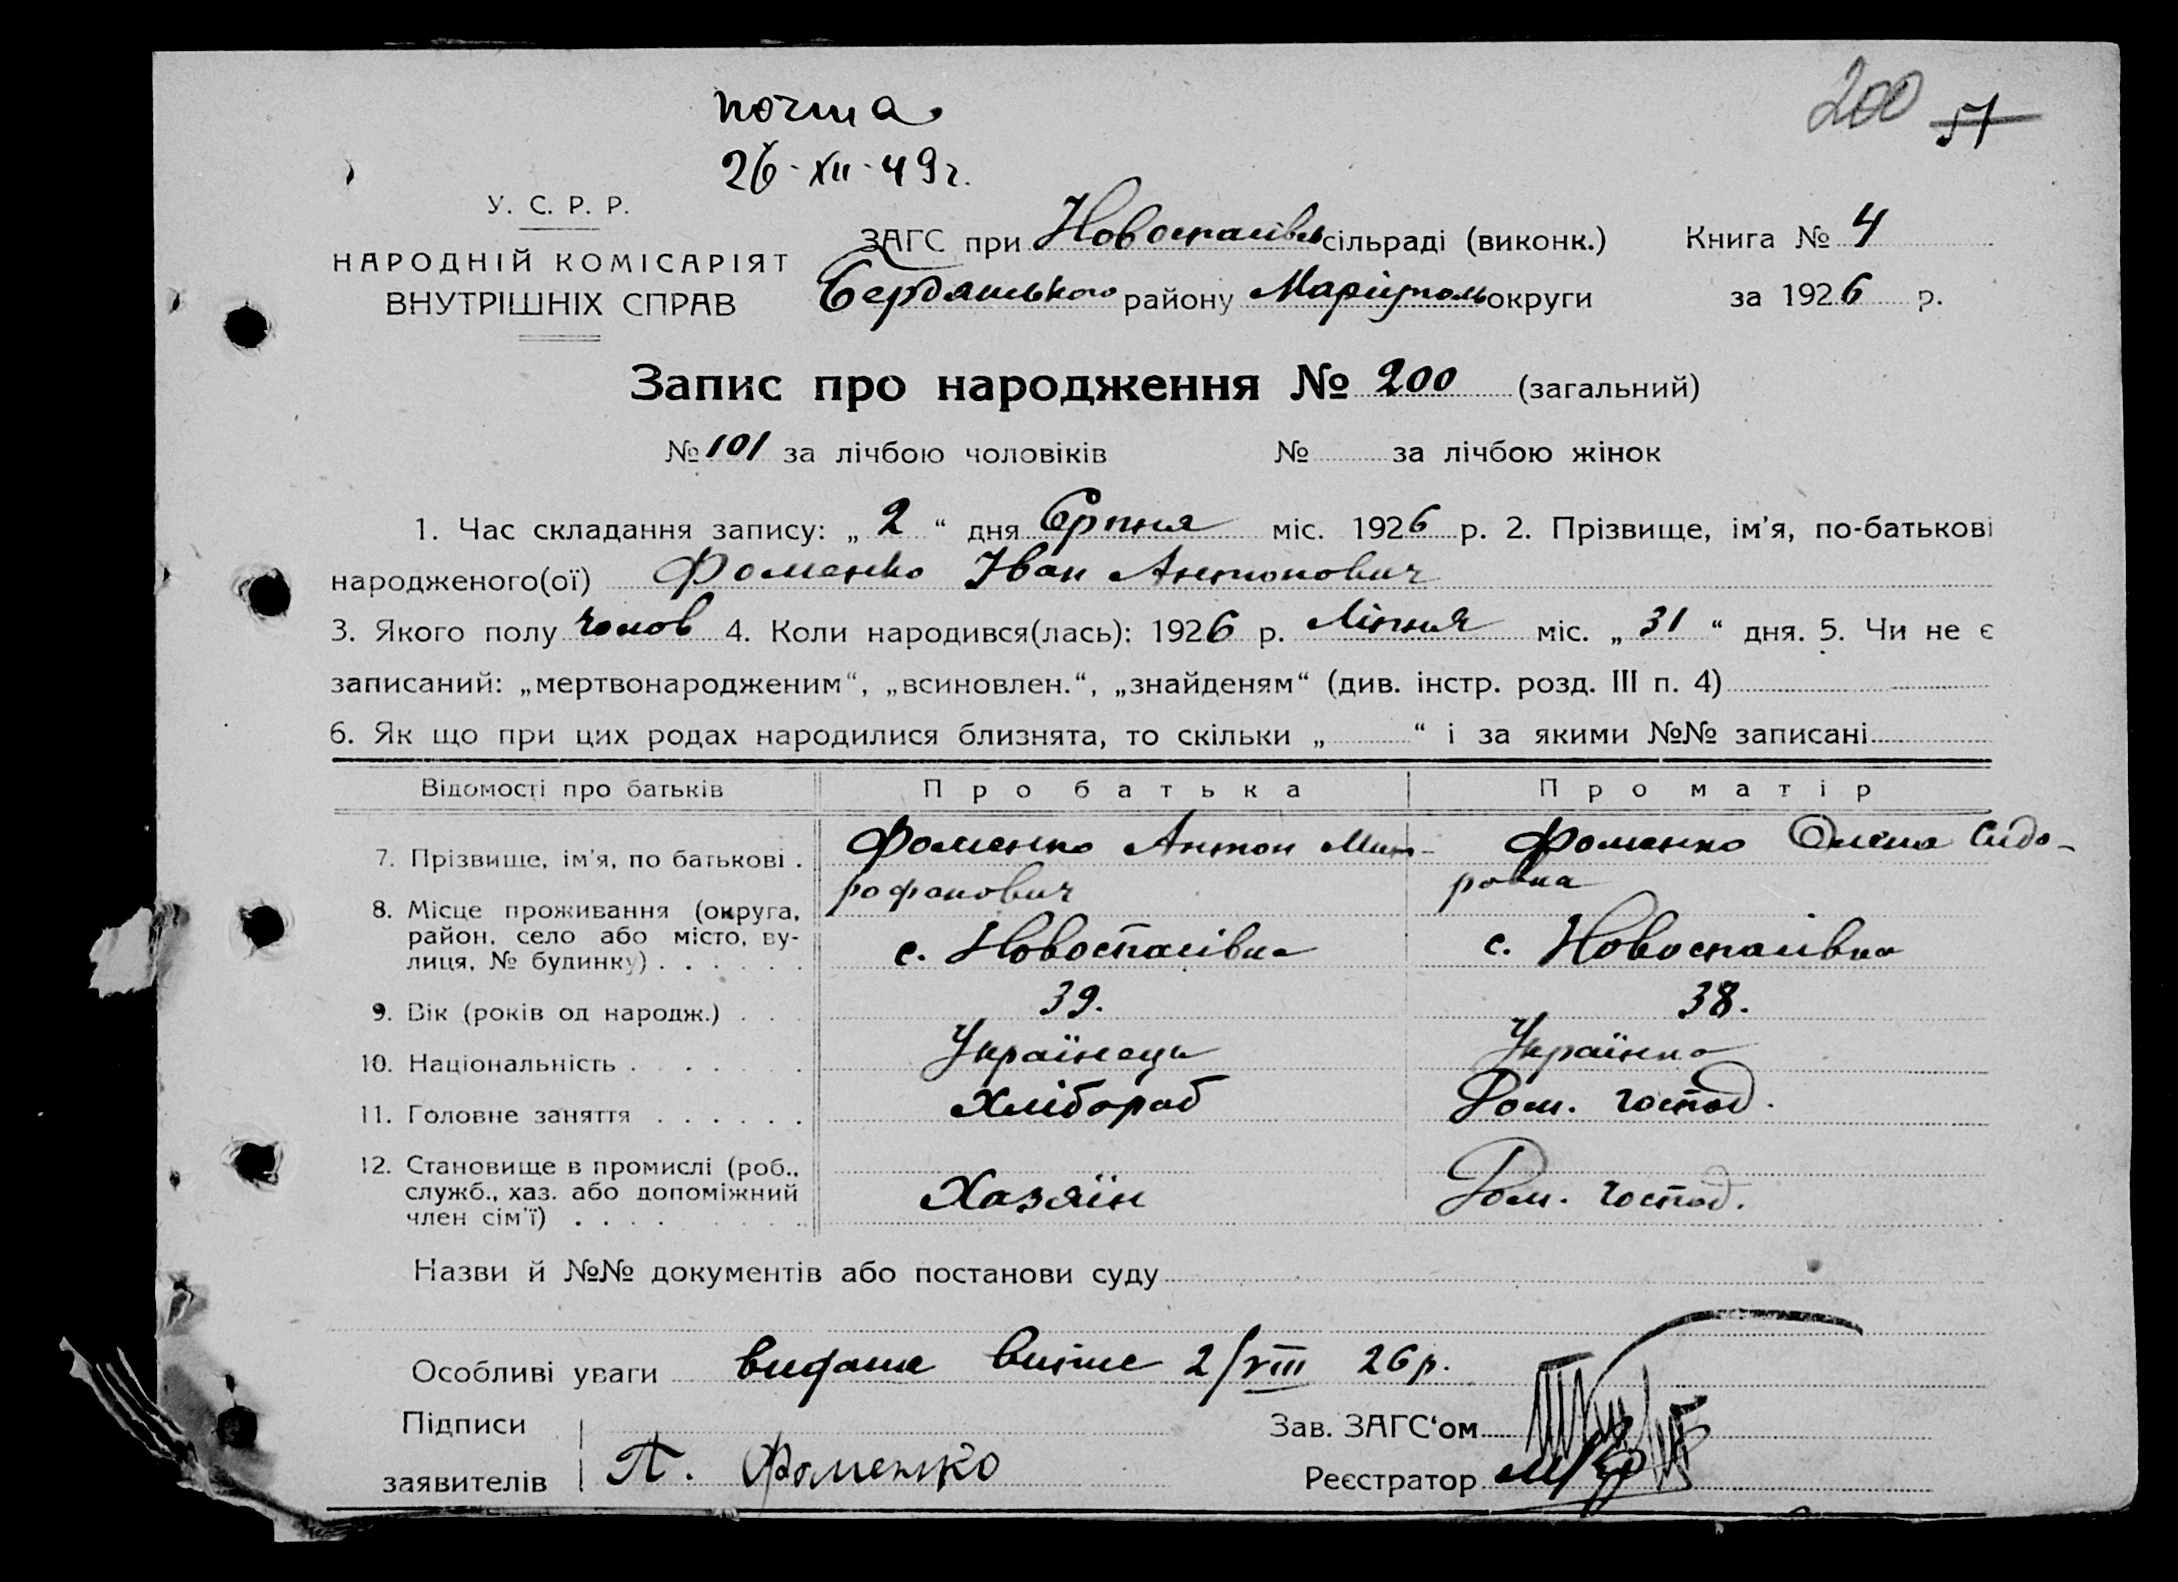 почта
26-XII-49г.
200 51
У. С. Р. Р.
НАРОДНІЙ КОМІСАРІЯТ
ВНУТРІШНІХ СПРАВ
ЗАГС при Новоспасівсь сільраді (виконк.) Книга № 4
Бердянського району Маріуполь округи за 1926 р.
Запис про народження № 200 (загальний)
№ 101 за лічбою чоловіків № за лічбою жінок
1. Час складання запису: „ 2 “ дня Серпня міс. 1926 р. 2. Прізвище, ім'я, по-батькові
народженого(ої) Фоменко Іван Антонович
3. Якого полу чолов 4. Коли народився(лась): 1926 р. Липня міс. „ 31 “ дня. 5. Чи не є
записаний: „мертвонародженим“, „всиновлен.“, „знайденям“ (див. інстр. розд. III п. 4)
6. Як що при цих родах народилися близнята, то скільки „ “ і за якими №№ записані
Відомості про батьків Про батька Про матір
7. Прізвище, ім'я, по батькові . Фоменко Антон Мит- Фоменко Олена Сидо-
рофанович ровна
8. Місце проживання (округа,
район, село або місто, ву-
лиця, № будинку) . . . . . . с. Новоспасівка с. Новоспасівка
9. Вік (років од народж.) . . . 39. 38.
10. Національність . . . . . Українець Українка
11. Головне заняття . . . . . . Хлібороб Дом. господ.
12. Становище в промислі (роб.,
служб., хаз. або допоміжний
член сім'ї) . . . . . . . . . Хазяїн Дом. господ.
Назви й №№ документів або постанови суду
Особливі уваги видане 2/VIII 26 р.
Підписи
заявителів П. Фоменко
Зав. ЗАГС‘ом
Реєстратор